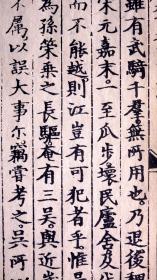 雖有武騎千羣無所用也乃退後稱
宋元嘉末至瓜步壞民廬舍及伐
而不能越則江豈有可犯者乎惟呂
為孫策乗之長驅奄有三吴與近岸
不属以誤大事尔竊嘗考之吴所